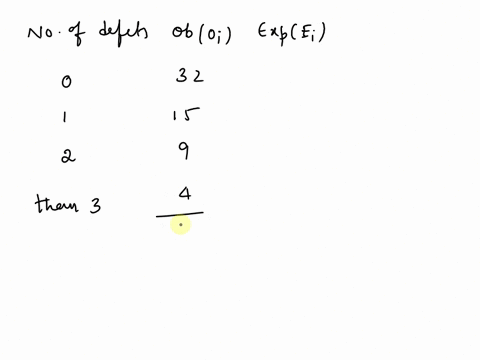 No. of defects Ob(Oi) Exp(Ei)
0 32
1 15
2 9
them 3 4